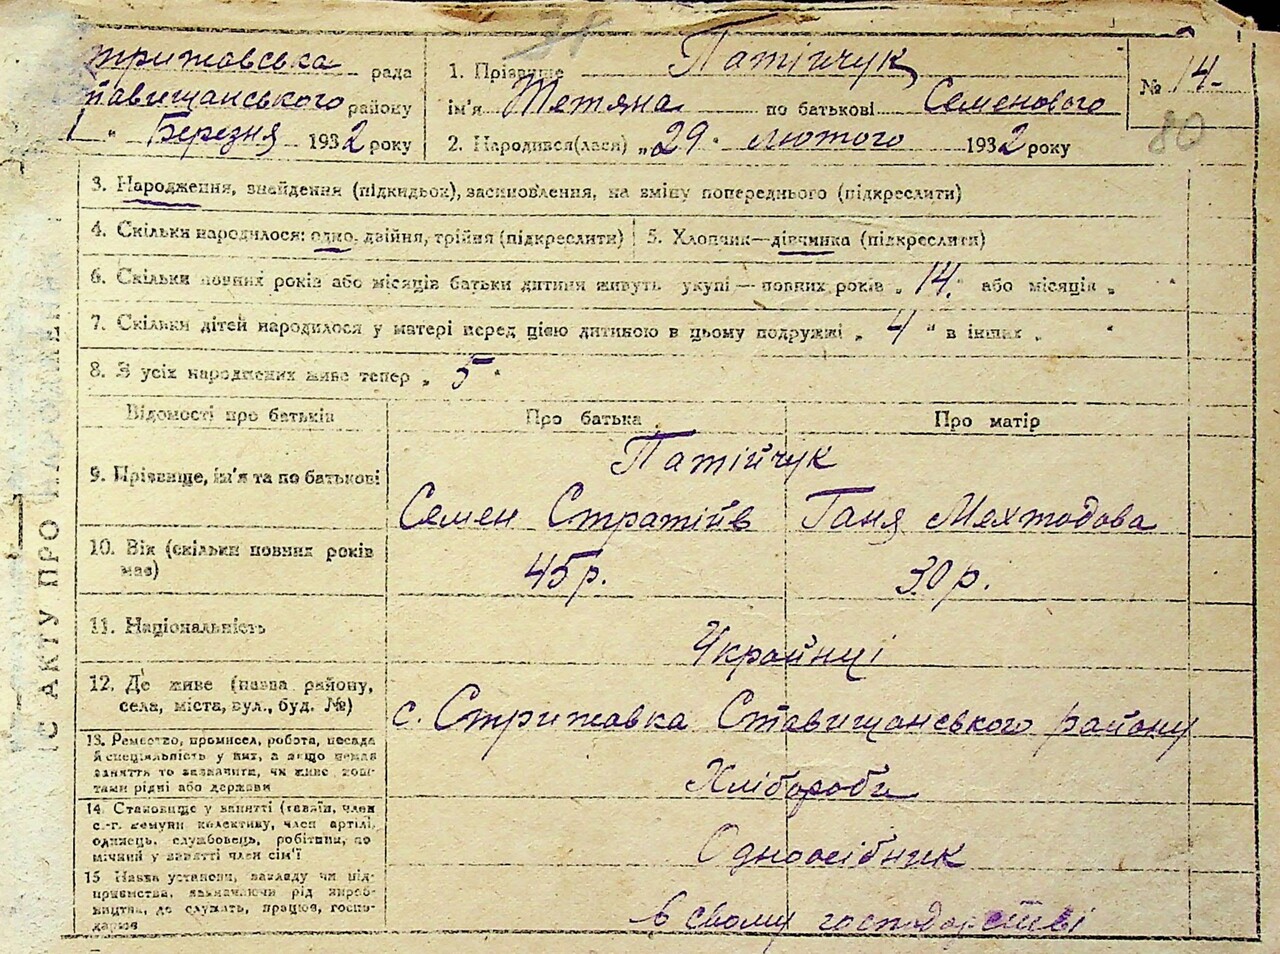 трижавська рада
тавищанського району
" Березня 1932 року
1. Прізвище Патійчук
ім'я Тетяна по батькові Семенового
2. Народився(лася) „29" лютого 1932 року
№ 14
80
3. Народження, знайдення (підкидьок), засиновлення, на зміну попереднього (підкреслити)
4. Скільки народилося: одно, двійня, трійня (підкреслити)
5. Хлопчик—дівчинка (підкреслити)
6. Скільки повних років або місяців батьки дитини живуть укупі — повних років „14" або місяців „
7. Скільки дітей народилося у матері перед цією дитиною в цьому подружжі „4" в інших „ "
8. З усіх народжених живе тепер „5"
Відомості про батьків
Про батька
Про матір
9. Прізвище, ім'я та по батькові
Патійчук
Семен Стратійв
Ганя Мехтодова
10. Вік (скільки повних років має)
45 р.
30 р.
11. Національність
Українці
12. Де живе (назва району,
села, міста, вул., буд. №)
с. Стрижавка Ставищанського району
13. Ремество, промисел, робота, посада
й спеціяльність у них, а якщо немає
заняття то зазначити, чи живе кош-
тами рідні або держави
Хлібороби
14. Становище у занятті (хазяїн, член
с.-г. комуни колективу, член артілі,
одинець, службовець, робітник, по
мічний у занятті член сім'ї
Одноосібник
15 Назва установи, закладу чи під-
приємства, зазначаючи рід вироб-
ництва, де служить, працює, госпо-
дарює
в свому господарстві
С АКТУ ПРО НАРОДЖЕН